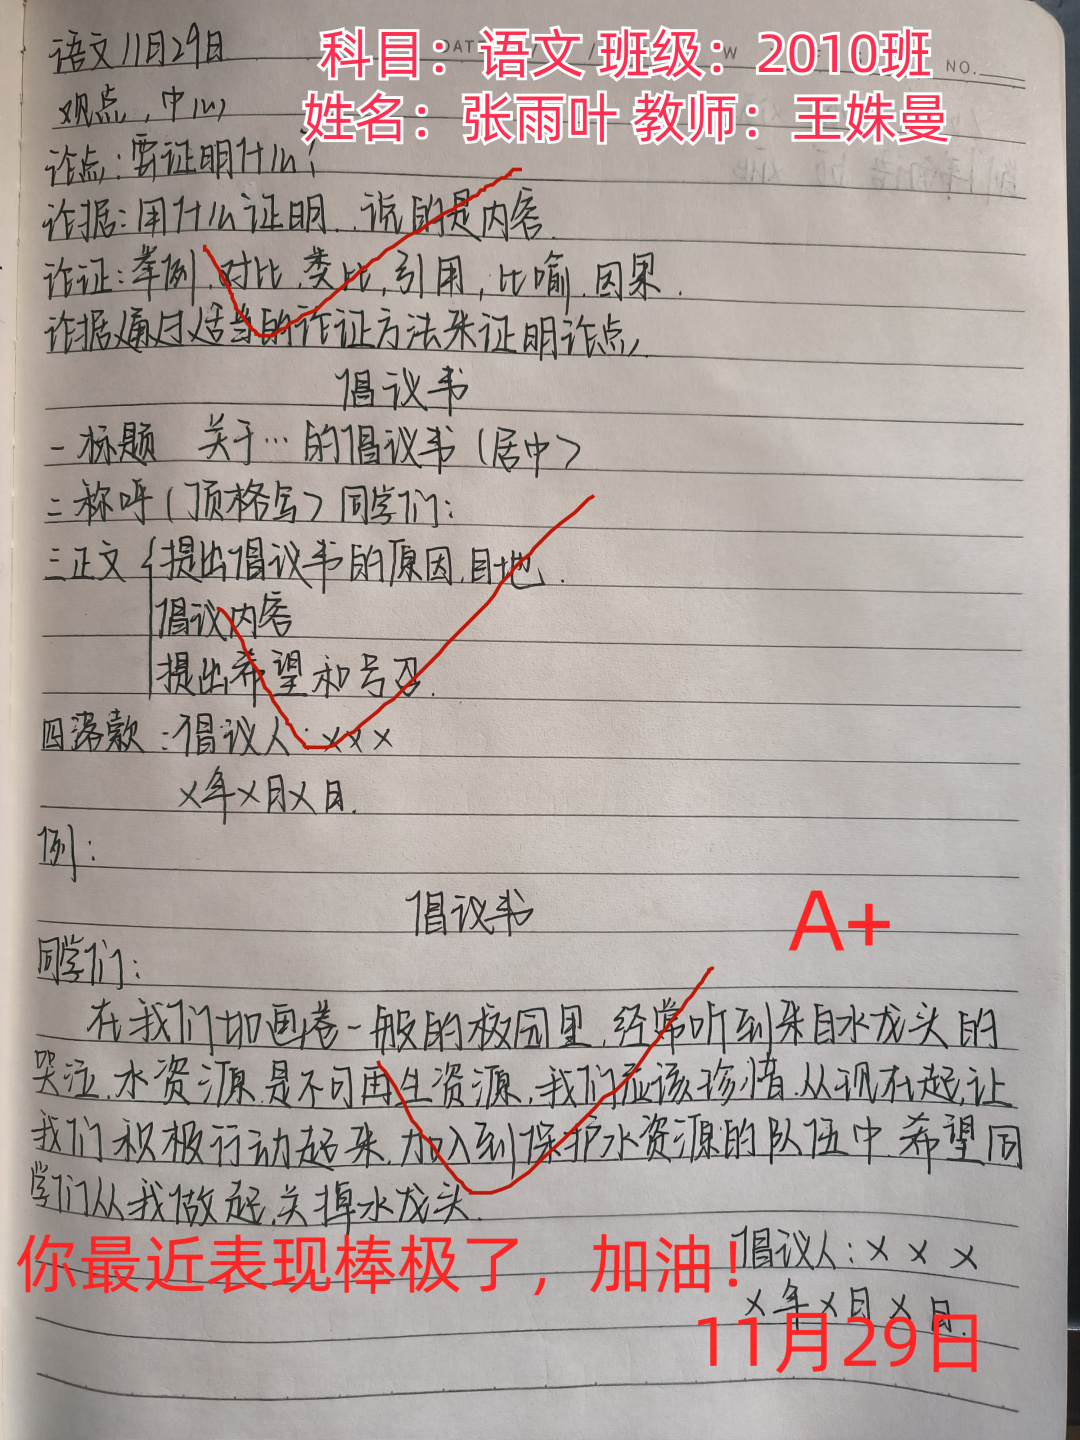 语文11月29日
DATE
W
NO.
科目：语文 班级：2010班
姓名：张雨叶 教师：王姝曼
观点，中心
论点：要证明什么
论据：用什么证明..说的是内容.
论证：举例.对比.类比,引用,比喻.因果.
论据通过适当的论证方法来证明论点,
倡议书
一标题 关于…的倡议书(居中)
二称呼(顶格写)同学们:
三正文{提出倡议书的原因,目地.
倡议内容
提出希望和号召.
四落款:倡议人:×××
×年×月×日.
例:
倡议书
A+
同学们:
在我们如画卷一般的校园里,经常听到来自水龙头的
哭泣.水资源是不可再生资源,我们应该珍惜.从现在起,让
我们积极行动起来,加入到保护水资源的队伍中.希望同
学们从我做起,关掉水龙头.
你最近表现棒极了，加油！
倡议人:×××
×年×月×日.
11月29日